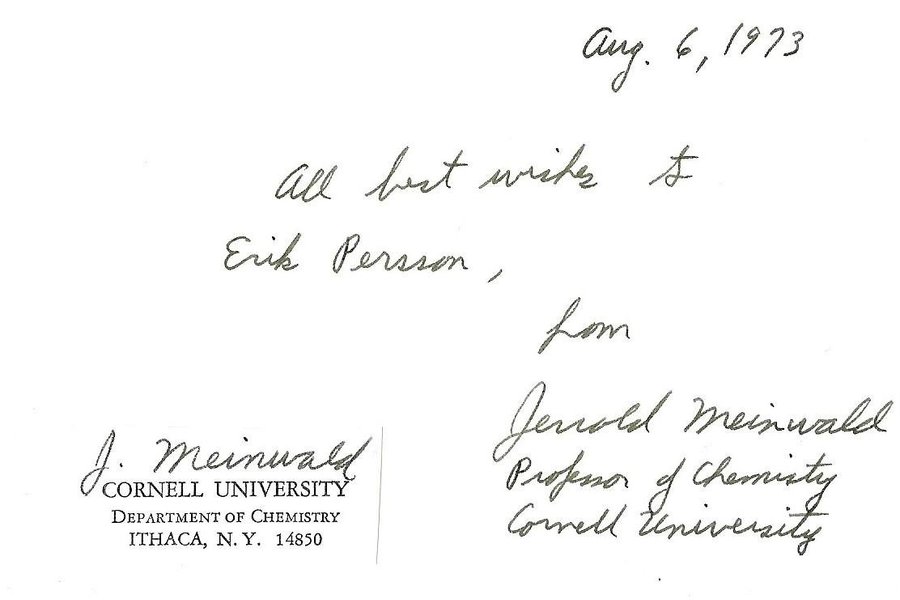 Aug. 6, 1973
All best wishes to
Erik Persson,
from
Jerrold Meinwald
Professor of Chemistry
Cornell University
J. Meinwald
CORNELL UNIVERSITY
DEPARTMENT OF CHEMISTRY
ITHACA, N.Y. 14850